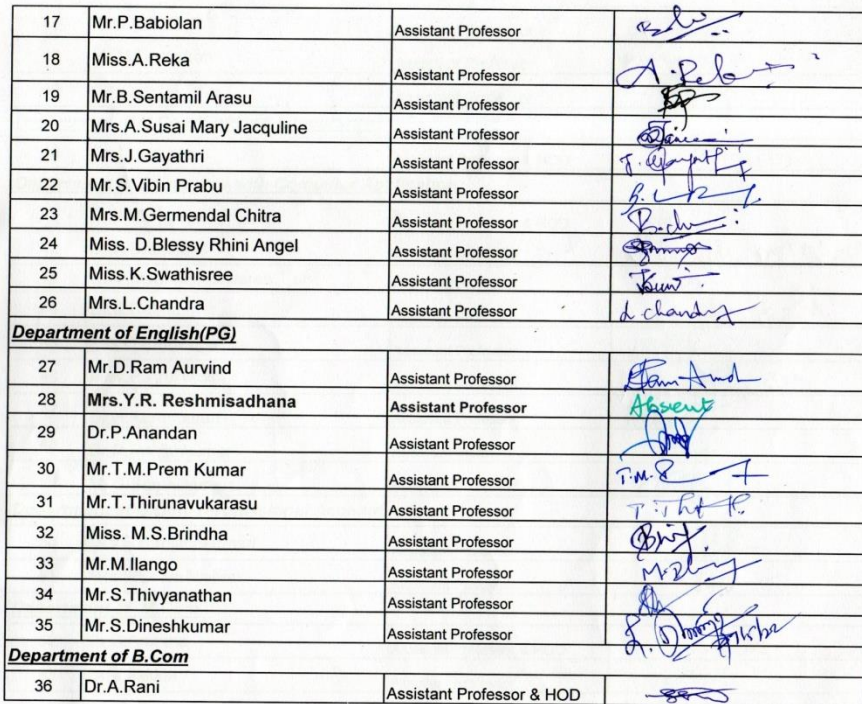 17 Mr.P.Babiolan Assistant Professor
18 Miss.A.Reka Assistant Professor A.Reka
19 Mr.B.Sentamil Arasu Assistant Professor
20 Mrs.A.Susai Mary Jacquline Assistant Professor
21 Mrs.J.Gayathri Assistant Professor J.Gayathri
22 Mr.S.Vibin Prabu Assistant Professor
23 Mrs.M.Germendal Chitra Assistant Professor
24 Miss. D.Blessy Rhini Angel Assistant Professor
25 Miss.K.Swathisree Assistant Professor
26 Mrs.L.Chandra Assistant Professor L.chandra
Department of English(PG)
27 Mr.D.Ram Aurvind Assistant Professor
28 Mrs.Y.R. Reshmisadhana Assistant Professor Absent
29 Dr.P.Anandan Assistant Professor
30 Mr.T.M.Prem Kumar Assistant Professor T.M.
31 Mr.T.Thirunavukarasu Assistant Professor
32 Miss. M.S.Brindha Assistant Professor
33 Mr.M.Ilango Assistant Professor
34 Mr.S.Thivyanathan Assistant Professor
35 Mr.S.Dineshkumar Assistant Professor
Department of B.Com
36 Dr.A.Rani Assistant Professor & HOD